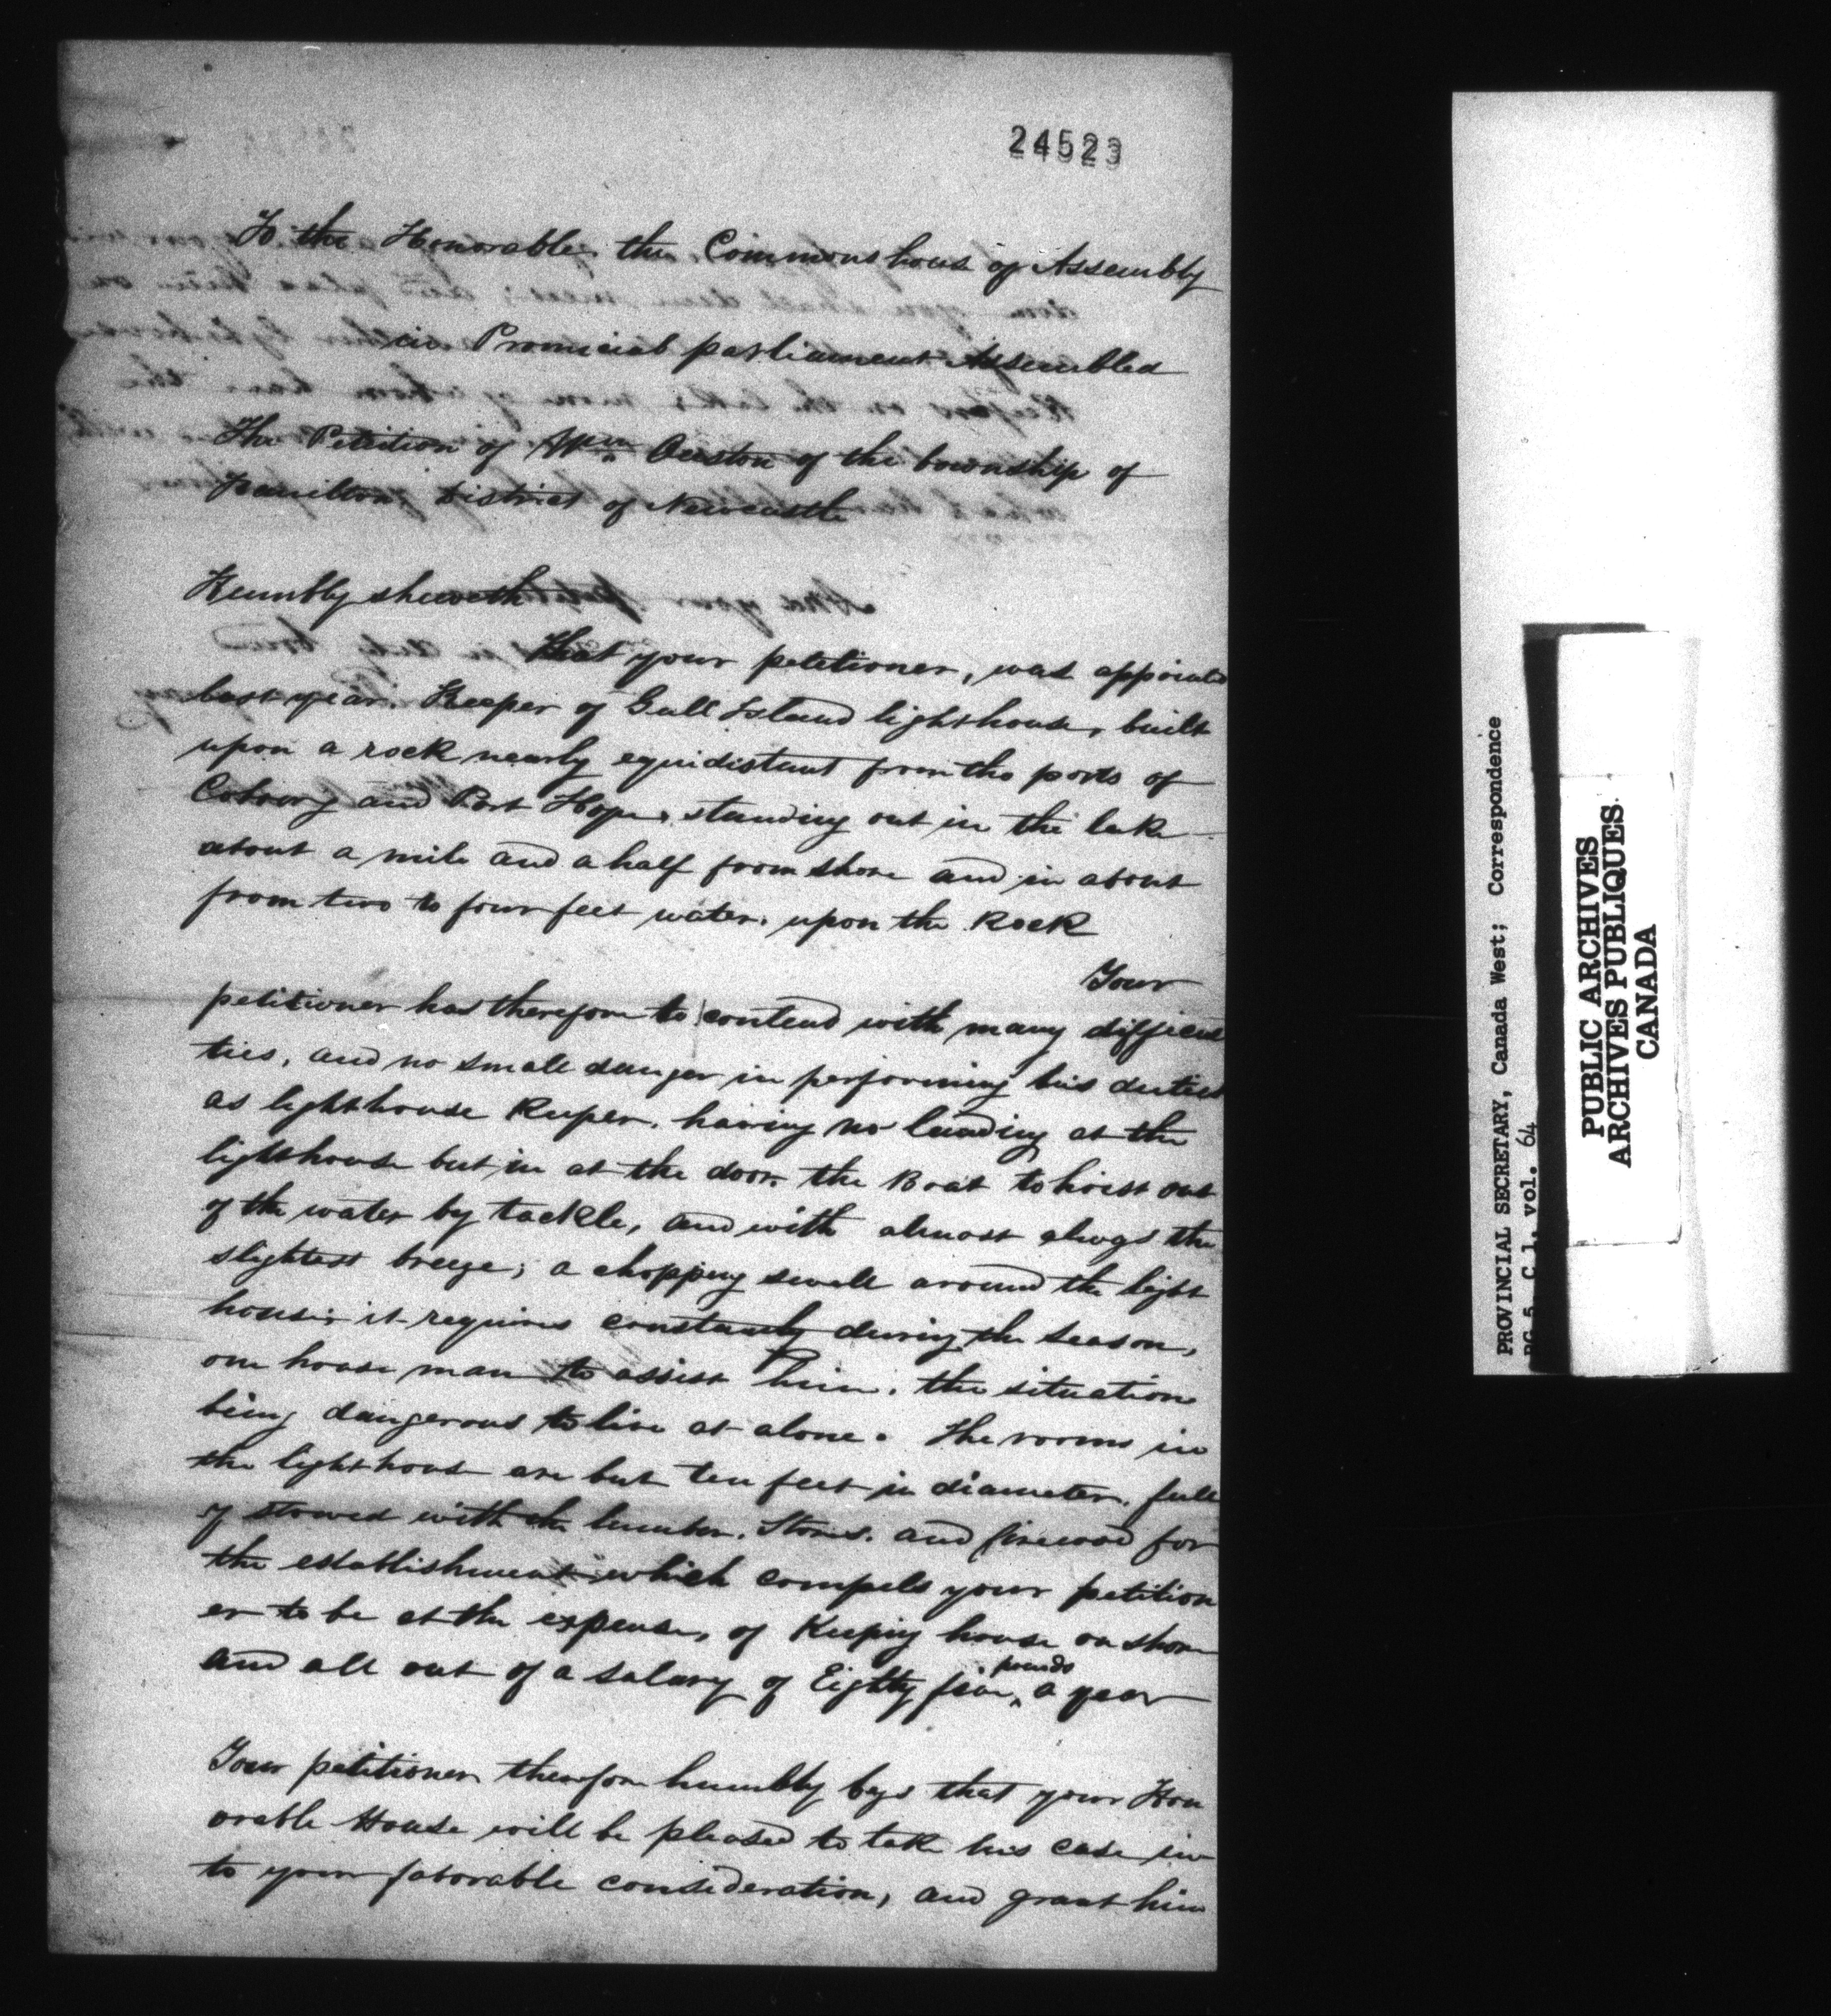 24523
To the Honorable the Commons house of Assembly
in Provincial parliament Assembled
The Petition of Wm Owston of the township of
Hamilton District of Newcastle
Humbly sheweth
That your petitioner, was appointed
last year. Keeper of Gull Island lighthouse, built
upon a rock nearly equidistant from the ports of
Cobourg and Port Hope, standing out in the lake
about a mile and a half from shore and in about
from two to four feet water. upon the Rock
Your
petitioner has therefore to contend with many difficul
ties, and no small danger in performing his duties
as lighthouse Keeper. having no landing at the
lighthouse but in at the door. the Boat to hoist out
of the water by tackle, and with almost always the
slightest breeze; a chopping swell around the light
house; it requires constantly during the season,
one house man to assist him. the situation
being dangerous to live at alone. The rooms in
the lighthouse are but ten feet in diameter, full
y stowed with the lumber. Stores. and firewood for
the establishment which compels your petition
er to be at the expense, of Keeping house on shore
and all out of a salary of Eighty five pounds a year
Your petitioner therefore humbly begs that your Hon
orable House will be pleased to take his case in
to your favorable consideration, and grant him
PROVINCIAL SECRETARY, Canada West; Correspondence
RG 5, C 1, vol. 64
PUBLIC ARCHIVES
ARCHIVES PUBLIQUES
CANADA